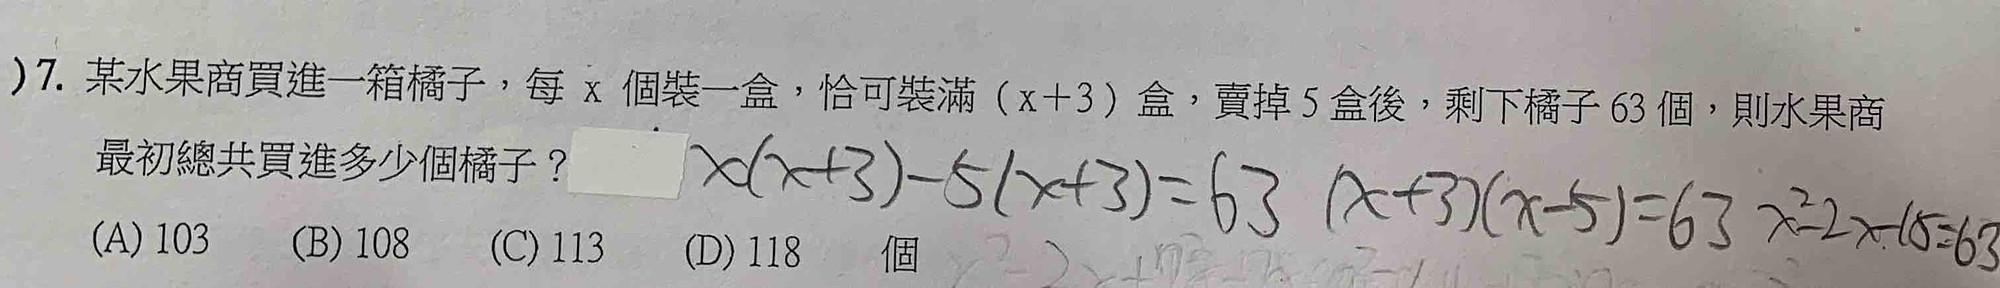 )7. 某水果商買進一箱橘子，每 x 個裝一盒，恰可裝滿（x＋3）盒，賣掉 5 盒後，剩下橘子 63 個，則水果商
最初總共買進多少個橘子？ x(x+3)-5(x+3)=63 (x+3)(x-5)=63 x²-2x-15=63
(A) 103 (B) 108 (C) 113 (D) 118 個